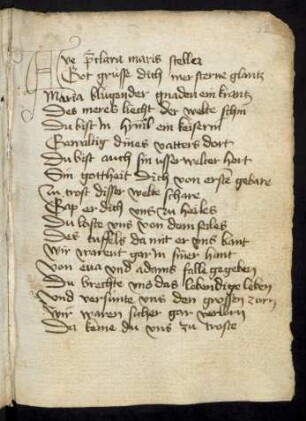 Ave p̄clara maris stella
Got grusse dich mer sterne glantz
Maria blügender gnaden ein krantz
Des meres liecht der welte schin
Du bist in hym̄l ein keiserin
Gewaltig dines vatters dort
Du bist auch sin usserwelter hort
Sin gottheit dich von erste gebare
zu trost disser welte schare
Gap er dich vns zu heiles
Du löste vns von dem seiles
Des tuffels da mit er vns bant
Wir warent gar in siner hant
Von eua vnd adams falle gegeben
Du brechte vns das lebendige leben
Vnd versunte vns den grossen zorn
Wir waren sicher gar verlorn
Da keme du vns zu troste